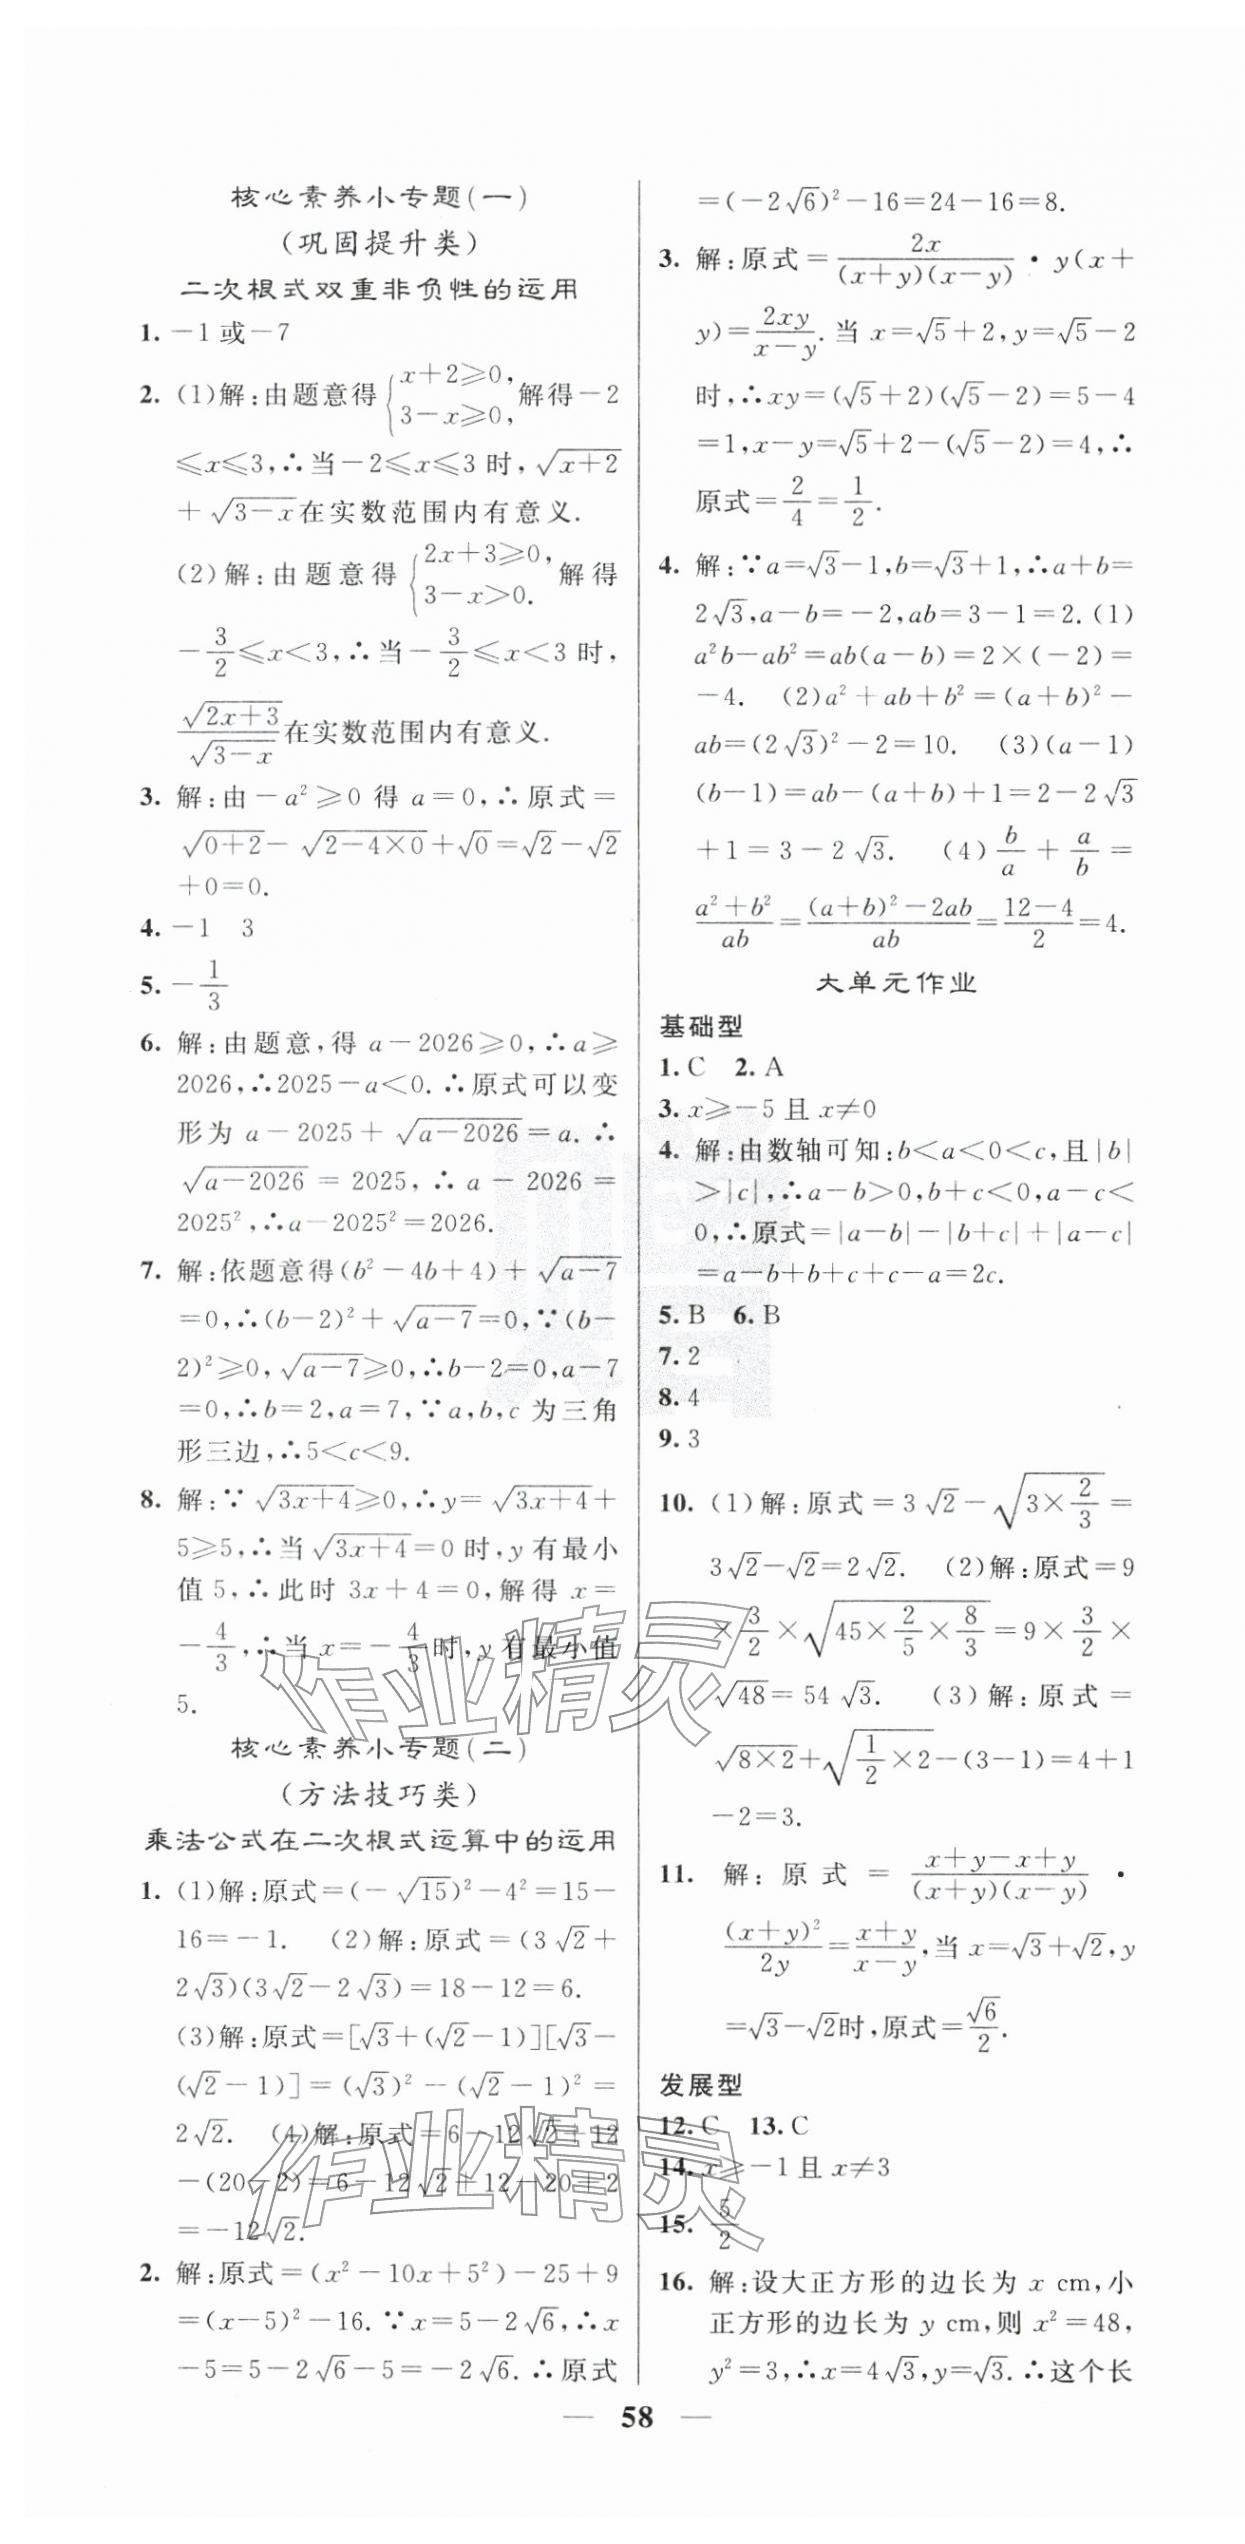 核心素养小专题(一)
(巩固提升类)
二次根式双重非负性的运用
1. －1或－7
2. (1)解:由题意得{x＋2≥0, 3－x≥0, 解得－2
≤x≤3,∴当－2≤x≤3时,√(x＋2)
＋√(3－x)在实数范围内有意义.
(2)解:由题意得{2x＋3≥0, 3－x>0. 解得
－3/2≤x<3,∴当－3/2≤x<3时,
√(2x＋3)/√(3－x)在实数范围内有意义.
3. 解:由－a²≥0得a＝0,∴原式＝
√(0＋2)－√(2－4×0)＋√0＝√2－√2
＋0＝0.
4. －1　3
5. －1/3
6. 解:由题意,得a－2026≥0,∴a≥
2026,∴2025－a<0.∴原式可以变
形为a－2025＋√(a－2026)＝a.∴
√(a－2026)＝2025,∴a－2026＝
2025²,∴a－2025²＝2026.
7. 解:依题意得(b²－4b＋4)＋√(a－7)
＝0,∴(b－2)²＋√(a－7)＝0,∵(b－
2)²≥0,√(a－7)≥0,∴b－2＝0,a－7
＝0,∴b＝2,a＝7,∵a,b,c为三角
形三边,∴5<c<9.
8. 解:∵√(3x＋4)≥0,∴y＝√(3x＋4)＋
5≥5,∴当√(3x＋4)＝0时,y有最小
值5,∴此时3x＋4＝0,解得x＝
－4/3,∴当x＝－4/3时,y有最小值
5.
核心素养小专题(二)
(方法技巧类)
乘法公式在二次根式运算中的运用
1. (1)解:原式＝(－√15)²－4²＝15－
16＝－1.　(2)解:原式＝(3√2＋
2√3)(3√2－2√3)＝18－12＝6.
(3)解:原式＝[√3＋(√2－1)][√3－
(√2－1)]＝(√3)²－(√2－1)²＝
2√2.　(4)解:原式＝6－12√2＋12
－(20－2)＝6－12√2＋12－20＋2
＝－12√2.
2. 解:原式＝(x²－10x＋5²)－25＋9
＝(x－5)²－16.∵x＝5－2√6,∴x
－5＝5－2√6－5＝－2√6.∴原式
＝(－2√6)²－16＝24－16＝8.
3. 解:原式＝2x/((x＋y)(x－y))·y(x＋
y)＝2xy/(x－y).当x＝√5＋2,y＝√5－2
时,∴xy＝(√5＋2)(√5－2)＝5－4
＝1,x－y＝√5＋2－(√5－2)＝4,∴
原式＝2/4＝1/2.
4. 解:∵a＝√3－1,b＝√3＋1,∴a＋b＝
2√3,a－b＝－2,ab＝3－1＝2.(1)
a²b－ab²＝ab(a－b)＝2×(－2)＝
－4.　(2)a²＋ab＋b²＝(a＋b)²－
ab＝(2√3)²－2＝10.　(3)(a－1)
(b－1)＝ab－(a＋b)＋1＝2－2√3
＋1＝3－2√3.　(4)b/a＋a/b＝
(a²＋b²)/ab＝((a＋b)²－2ab)/ab＝(12－4)/2＝4.
大单元作业
基础型
1. C　2. A
3. x≥－5且x≠0
4. 解:由数轴可知:b<a<0<c,且|b|
>|c|,∴a－b>0,b＋c<0,a－c<
0,∴原式＝|a－b|－|b＋c|＋|a－c|
＝a－b＋b＋c＋c－a＝2c.
5. B　6. B
7. 2
8. 4
9. 3
10. (1)解:原式＝3√2－√(3×2/3)＝
3√2－√2＝2√2.　(2)解:原式＝9
×3/2×√(45×2/5×8/3)＝9×3/2×
√48＝54√3.　(3)解:原式＝
√(8×2)＋√(1/2×2)－(3－1)＝4＋1
－2＝3.
11. 解:原式＝(x＋y－x＋y)/((x＋y)(x－y))·
(x＋y)²/2y＝(x＋y)/(x－y),当x＝√3＋√2,y
＝√3－√2时,原式＝√6/2.
发展型
12. C　13. C
14. x≥－1且x≠3
15. 5/2
16. 解:设大正方形的边长为x cm,小
正方形的边长为y cm,则x²＝48,
y²＝3,∴x＝4√3,y＝√3.∴这个长
— 58 —
作业精灵
作业精灵